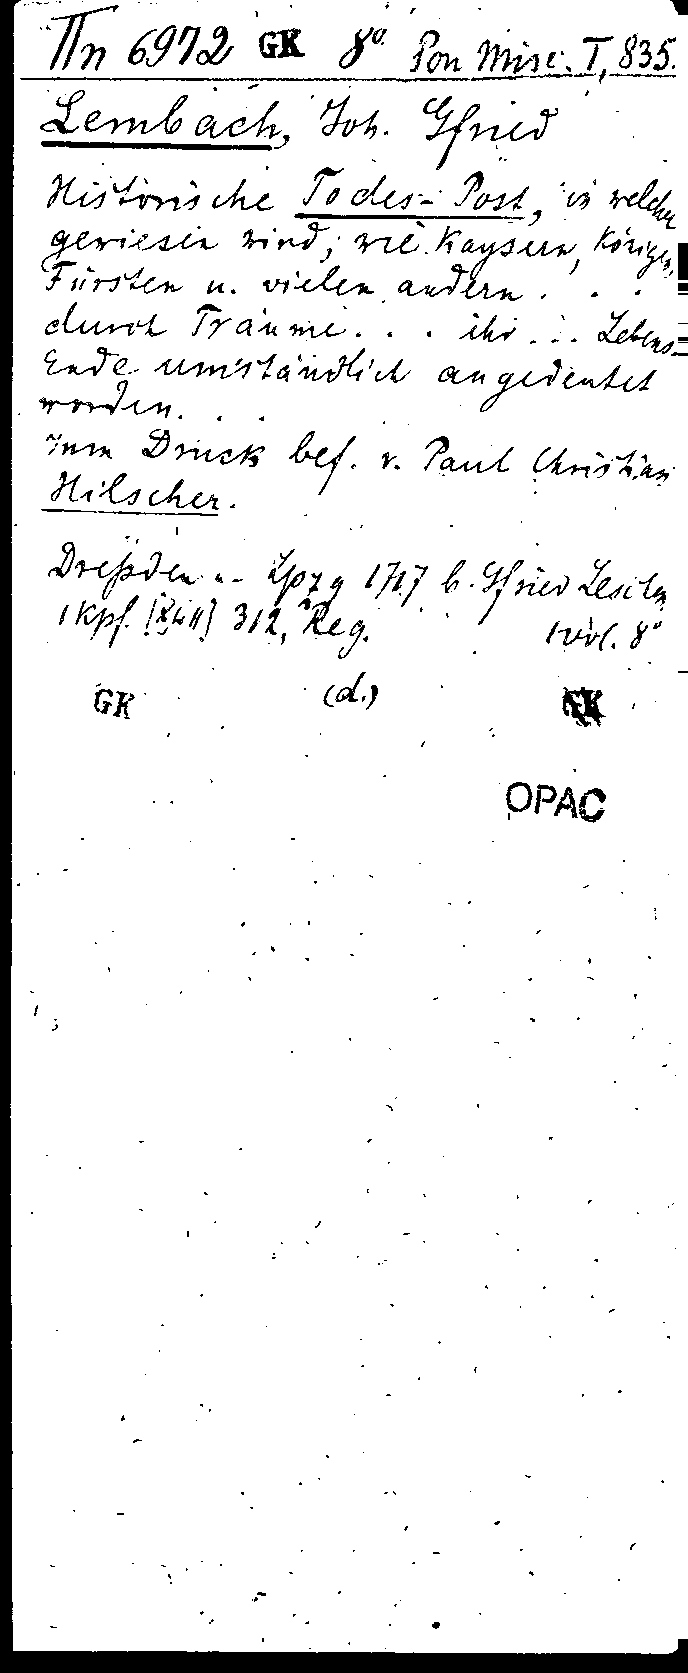 Πn 6972 GK 8º Pon Misc. T, 835.
Lembach, Joh. Gfried
Historische Todes-Post, in welcher
gewiesen wird, wie Kaysern, Königen,
Fürsten u. vielen andern . . .
durch Träume . . . ihr ... Lebens-
Ende umständlich angedeutet
worden. . .
zum Druck bef. v. Paul Christian
Hilscher.
Dreßden u. Lpzg 1717 b. Gfried Lesch
1 Kpf. 312, Reg. 1 vol. 8º
GK (d.) GK
OPAC